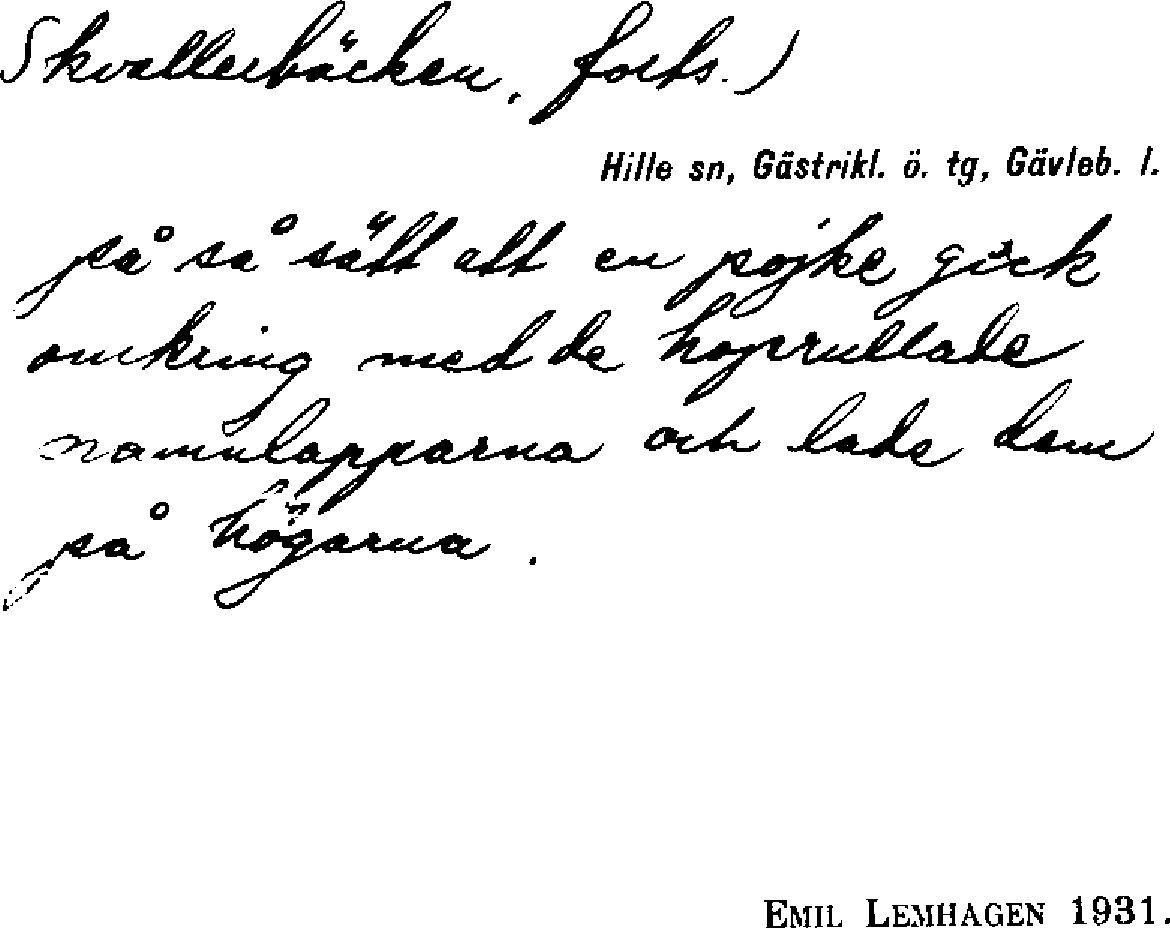 Skvallerbäcken, forts.)
Hille sn, Gästrikl. ö. tg, Gävleb. l.
på så sätt att en pojke gick
omkring med de hoprullade
namnlapparna och lade dem
på högarna.
EMIL LEMHAGEN 1931.